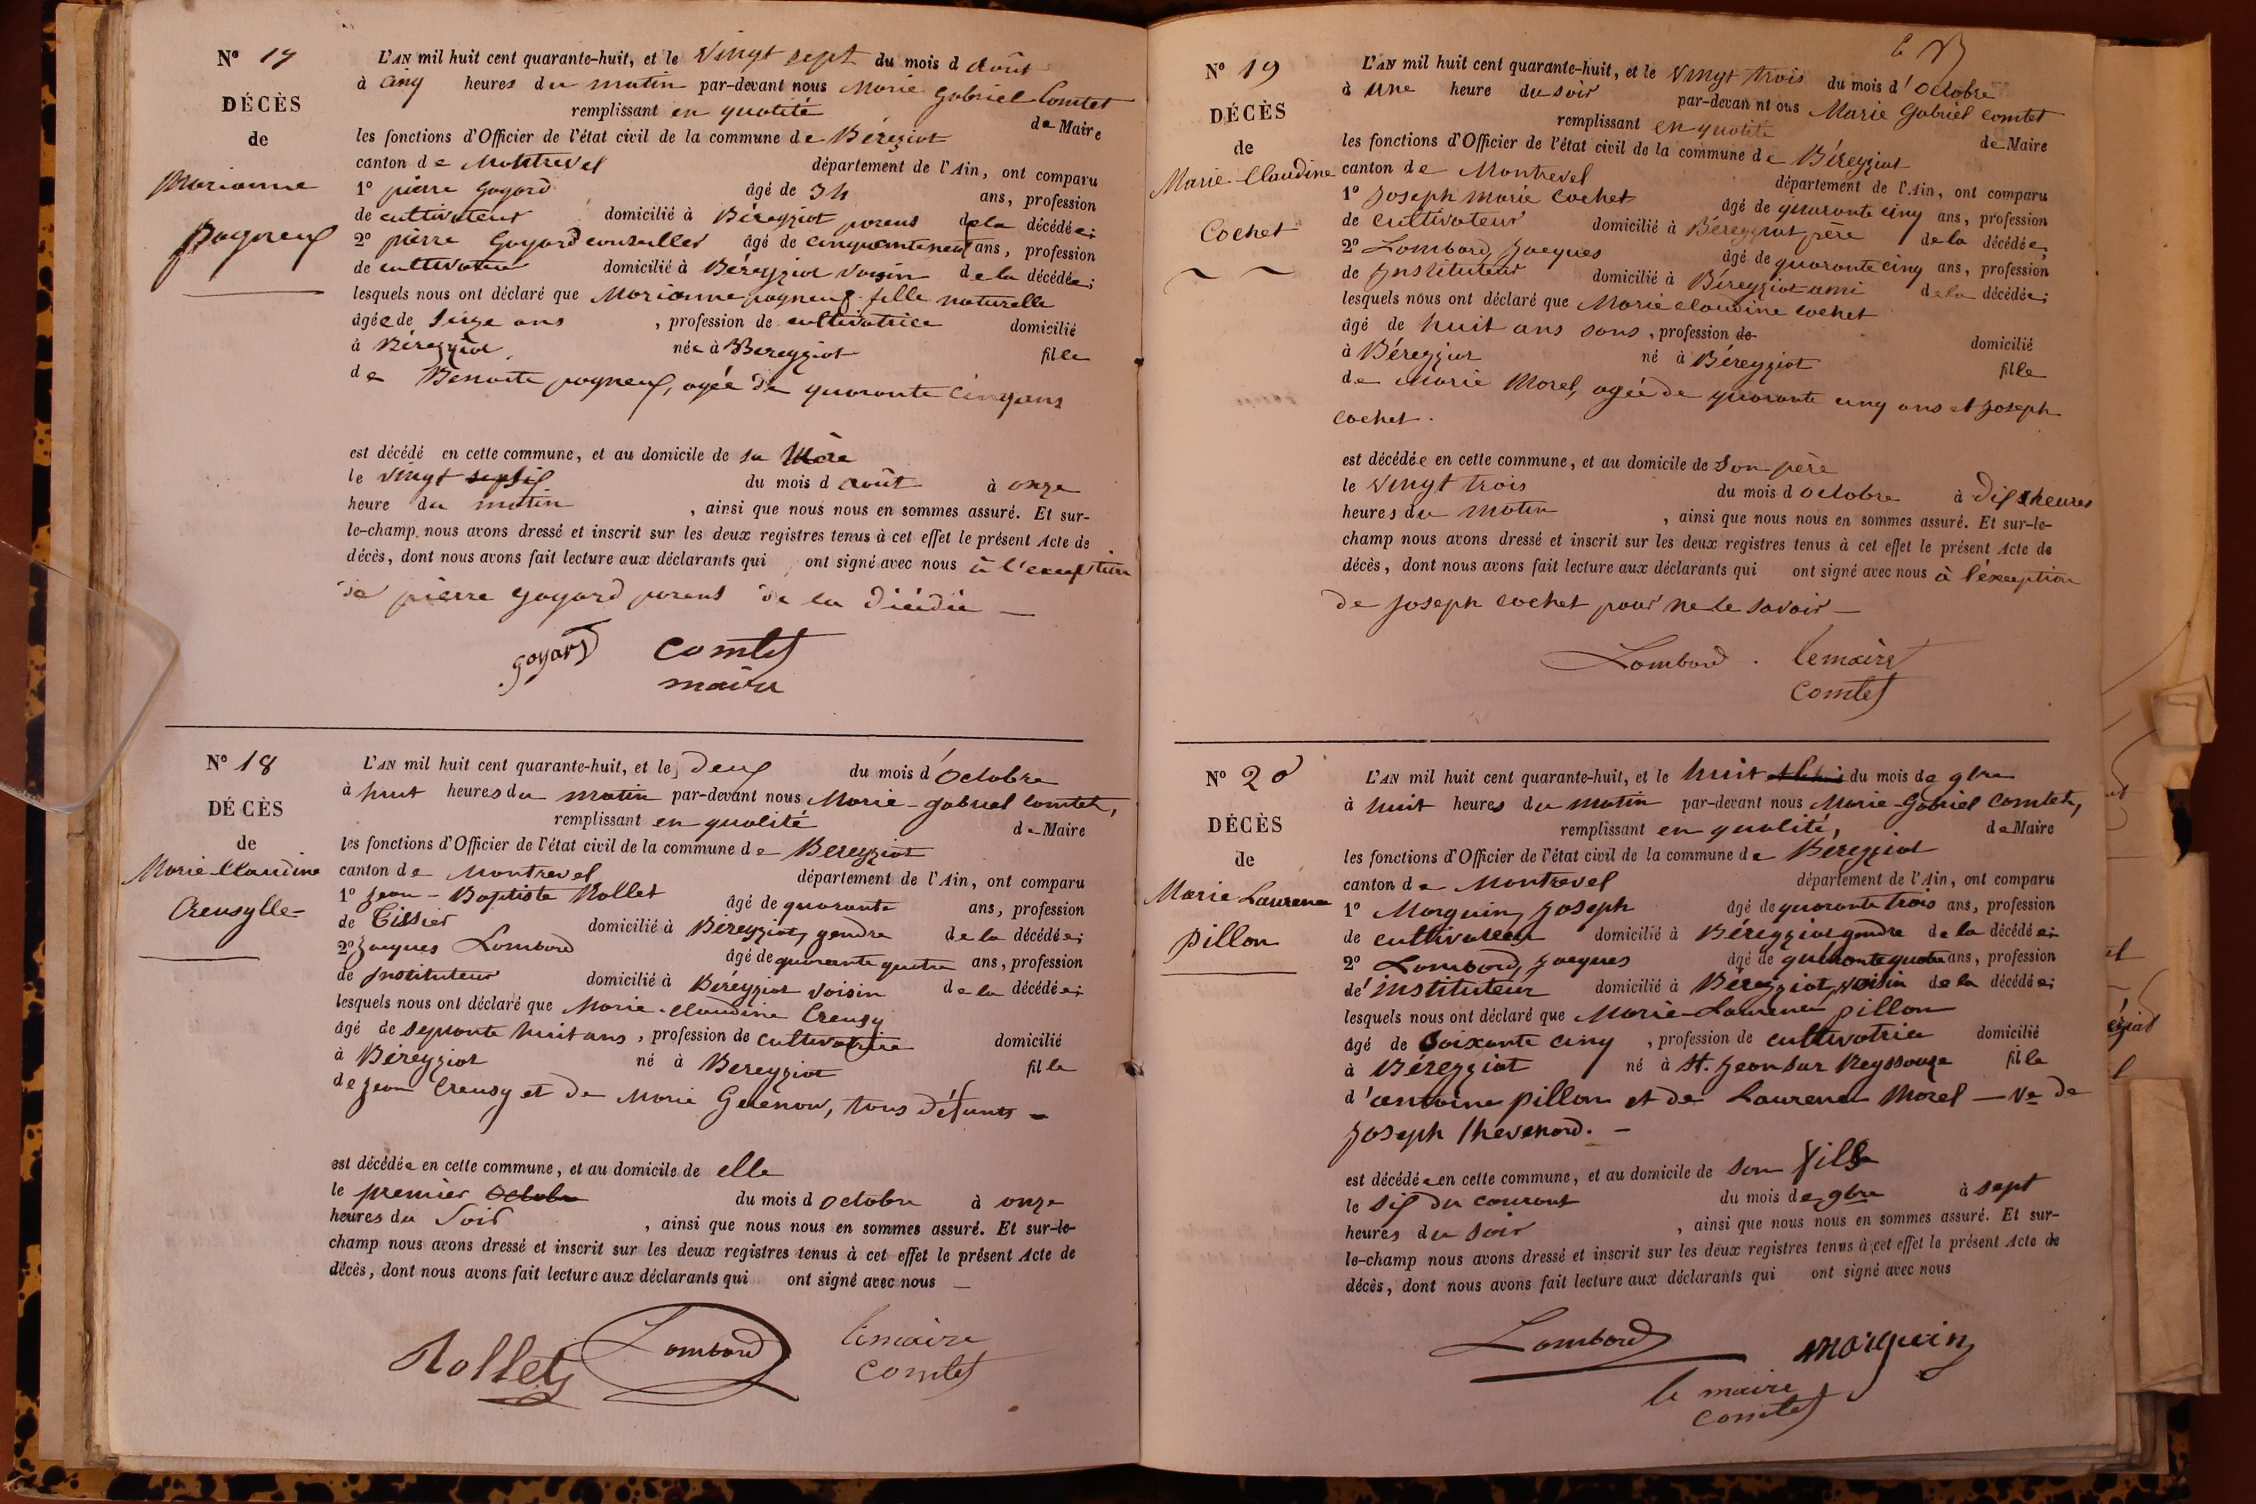 N° 17
DÉCÈS
de
Marianne
pagneux
L'AN mil huit cent quarante-huit, et le vingt sept du mois d août
à cinq heures du matin par-devant nous Marie Gabriel Comtet
remplissant en qualité de Maire
les fonctions d'Officier de l'état civil de la commune de Béreyziat
canton de Montrevel département de l'Ain, ont comparu
1° pierre Goyard âgé de 34 ans, profession
de cultivateur domicilié à Béreyziat parens de la décédée;
2° pierre Goyard conseiller âgé de cinquante neuf ans, profession
de cultivateur domicilié à Béreyziat voisin de la décédée;
lesquels nous ont déclaré que Marianne pagneux fille naturelle
âgée de seize ans , profession de cultivatrice domicilié
à Béreyziat née à Béreyziat fille
de Benoite pagneux, agée de quarante cinq ans
est décédé en cette commune, et au domicile de sa Mère
le vingt du mois d août à onze
heure du matin , ainsi que nous nous en sommes assuré. Et sur-
le-champ nous avons dressé et inscrit sur les deux registres tenus à cet effet le présent Acte de
décès, dont nous avons fait lecture aux déclarants qui ont signé avec nous à l'exception
de pierre goyard parens de la décédée —
goyard comtet
maire
N° 18
DÉCÈS
de
Marie Claudine
Creusylle
L'AN mil huit cent quarante-huit, et le deux du mois d'octobre
à huit heures du matin par-devant nous Marie-gabriel Comtet,
remplissant en qualité de Maire
les fonctions d'Officier de l'état civil de la commune de Béreyziat
canton de Montrevel département de l'Ain, ont comparu
1° jean-Baptiste Rollet âgé de quarante ans, profession
de Tissier domicilié à Béreyziat, gendre de la décédée;
2° jacques Lombard âgé de quarante quatre ans, profession
de instituteur domicilié à Béreyziat voisin de la décédée;
lesquels nous ont déclaré que Marie-claudine Creusy
âgé de septante huit ans, profession de cultivatrice domicilié
à Béreyziat né à Béreyziat fille
de jean Creusy et de Marie Guenon, tous défunts —
est décédée en cette commune, et au domicile de elle
le premier octobre du mois d octobre à onze
heures du soir , ainsi que nous nous en sommes assuré. Et sur-le-
champ nous avons dressé et inscrit sur les deux registres tenus à cet effet le présent Acte de
décès, dont nous avons fait lecture aux déclarants qui ont signé avec nous —
Rollet Lombard lemaire
comtet
N° 19
DÉCÈS
de
Marie Claudine
Cochet
L'AN mil huit cent quarante-huit, et le vingt trois du mois d'octobre
à une heure du soir par-devan nt ous Marie Gabriel comtet
remplissant en qualité de Maire
les fonctions d'Officier de l'état civil de la commune de Béreyziat
canton de Montrevel département de l'Ain, ont comparu
1° joseph marie cochet âgé de quarante cinq ans, profession
de cultivateur domicilié à Béreyziat père de la décédée,
2° Lombard, jacques âgé de quarante cinq ans, profession
de instituteur domicilié à Béreyziat ami de la décédée;
lesquels nous ont déclaré que Marie claudine cochet
âgé de huit ans sans , profession de domicilié
à Béreyziat né à Béreyziat fille
de Marie Morel, agée de quarante cinq ans et joseph
cochet.
est décédée en cette commune, et au domicile de son père
le vingt trois du mois d octobre à dix heures
heures du matin , ainsi que nous nous en sommes assuré. Et sur-le-
champ nous avons dressé et inscrit sur les deux registres tenus à cet effet le présent Acte de
décès, dont nous avons fait lecture aux déclarants qui ont signé avec nous à l'exception
de joseph cochet pour ne le savoir —
Lombard . lemaire
comtet
N° 20
DÉCÈS
de
Marie Laurence
pillon
L'AN mil huit cent quarante-huit, et le huit du mois de 9bre
à huit heures du matin par-devant nous Marie-Gabriel Comtet,
remplissant en qualité, de Maire
les fonctions d'Officier de l'état civil de la commune de Béreyziat
canton de Montrevel département de l'Ain, ont comparu
1° Marguin, joseph âgé de quarante trois ans, profession
de cultivateur domicilié à Béreyziat gendre de la décédée;
2° Lombard, jacques âgé de quarante quatre ans, profession
de instituteur domicilié à Béreyziat, voisin de la décédée;
lesquels nous ont déclaré que Marie-Laurence pillon
âgé de soixante cinq , profession de cultivatrice domicilié
à Béreyziat né à St. jean sur Reyssouze fille
d'antoine pillon et de Laurence Morel — Ve de
joseph Thevenard. —
est décédée en cette commune, et au domicile de son fille
le six du courant du mois de 9bre à sept
heures du soir , ainsi que nous nous en sommes assuré. Et sur-
le-champ nous avons dressé et inscrit sur les deux registres tenus à cet effet le présent Acte de
décès, dont nous avons fait lecture aux déclarants qui ont signé avec nous
Lombard marguin
le maire
comtet